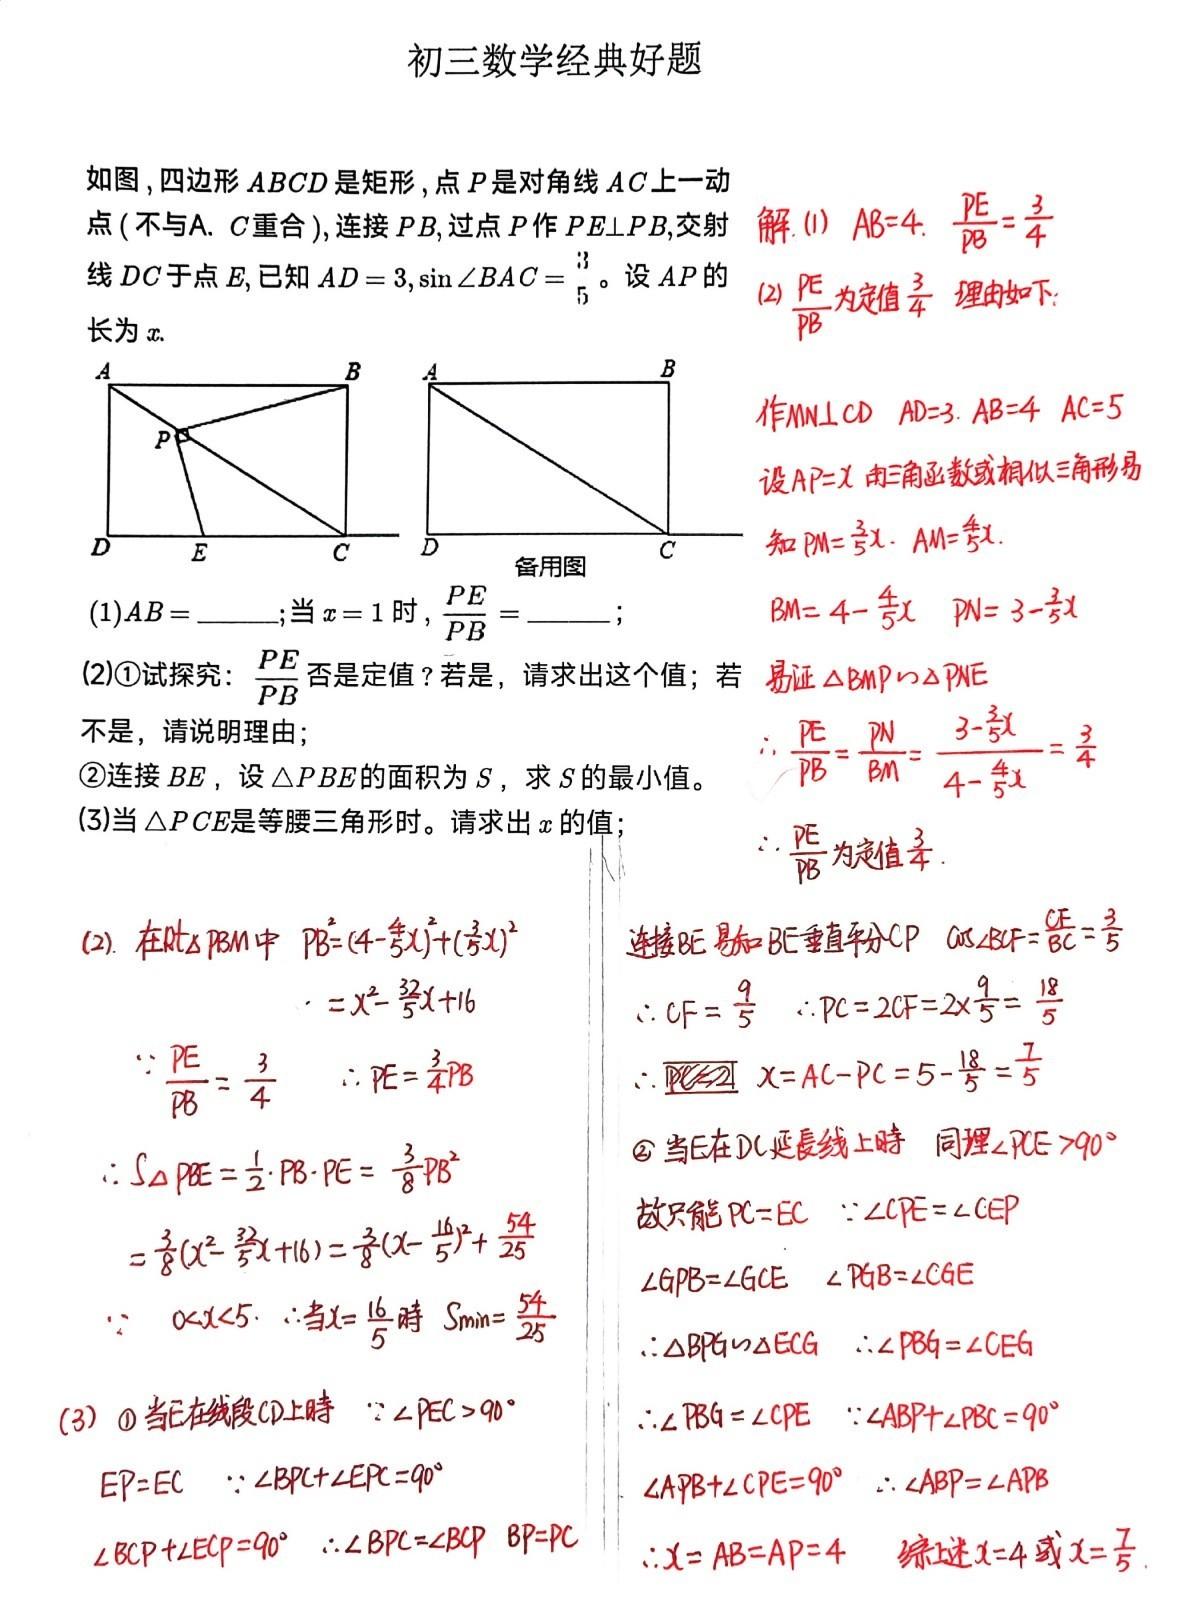 初三数学经典好题
如图,四边形 ABCD 是矩形,点 P 是对角线 AC 上一动
点(不与A、C重合),连接 PB,过点 P 作 PE⊥PB,交射
线 DC 于点 E,已知 AD=3,sin∠BAC=3/5。设 AP 的
长为 x.
A B
P
D E C
A B
D C
备用图
(1)AB=______;当 x=1 时,PE/PB=______;
(2)①试探究:PE/PB 否是定值?若是,请求出这个值;若
不是,请说明理由;
②连接 BE,设 △PBE的面积为 S,求 S 的最小值。
(3)当 △PCE是等腰三角形时。请求出 x 的值;
解.(1) AB=4. PE/PB=3/4
(2) PE/PB 为定值3/4 理由如下:
作MN⊥CD AD=3. AB=4 AC=5
设AP=x 由三角函数或相似三角形易
知PM=3/5x. AM=4/5x.
BM=4-4/5x PN=3-3/5x
易证△BMP∽△PNE
∴ PE/PB=PN/BM=(3-3/5x)/(4-4/5x)=3/4
∴ PE/PB 为定值3/4.
(2). 在Rt△PBM中 PB²=(4-4/5x)²+(3/5x)²
=x²-32/5x+16
∵ PE/PB=3/4 ∴PE=3/4PB
∴S△PBE=1/2·PB·PE=3/8PB²
=3/8(x²-32/5x+16)=3/8(x-16/5)²+54/25
∵ 0<x<5. ∴当x=16/5時 Smin=54/25
(3) ①当E在线段CD上時 ∵∠PEC>90°
EP=EC ∵∠BPC+∠EPC=90°
∠BCP+∠ECP=90° ∴∠BPC=∠BCP BP=PC
连接BE 易知BE垂直平分CP cos∠BCF=CF/BC=3/5
∴CF=9/5 ∴PC=2CF=2×9/5=18/5
∴ x=AC-PC=5-18/5=7/5
②当E在DC延長线上時 同理∠PCE>90°
故只能PC=EC ∵∠CPE=∠CEP
∠GPB=∠GCE ∠PGB=∠CGE
∴△BPG∽△ECG ∴∠PBG=∠CEG
∴∠PBG=∠CPE ∵∠ABP+∠PBC=90°
∠APB+∠CPE=90° ∴∠ABP=∠APB
∴x=AB=AP=4 综上述x=4或x=7/5.